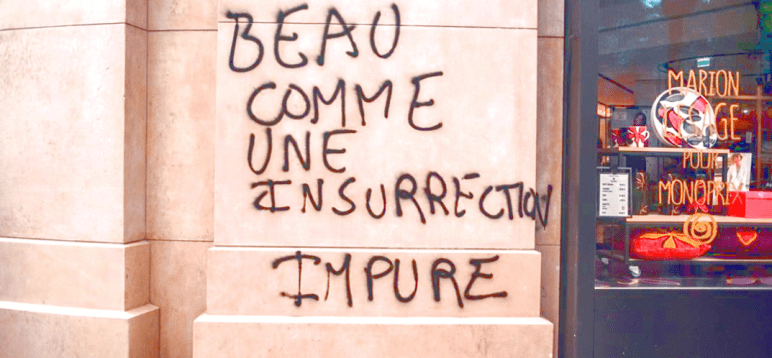 BEAU
COMME
UNE
INSURRECTION
IMPURE
MARION
POUR
MONOPRIX